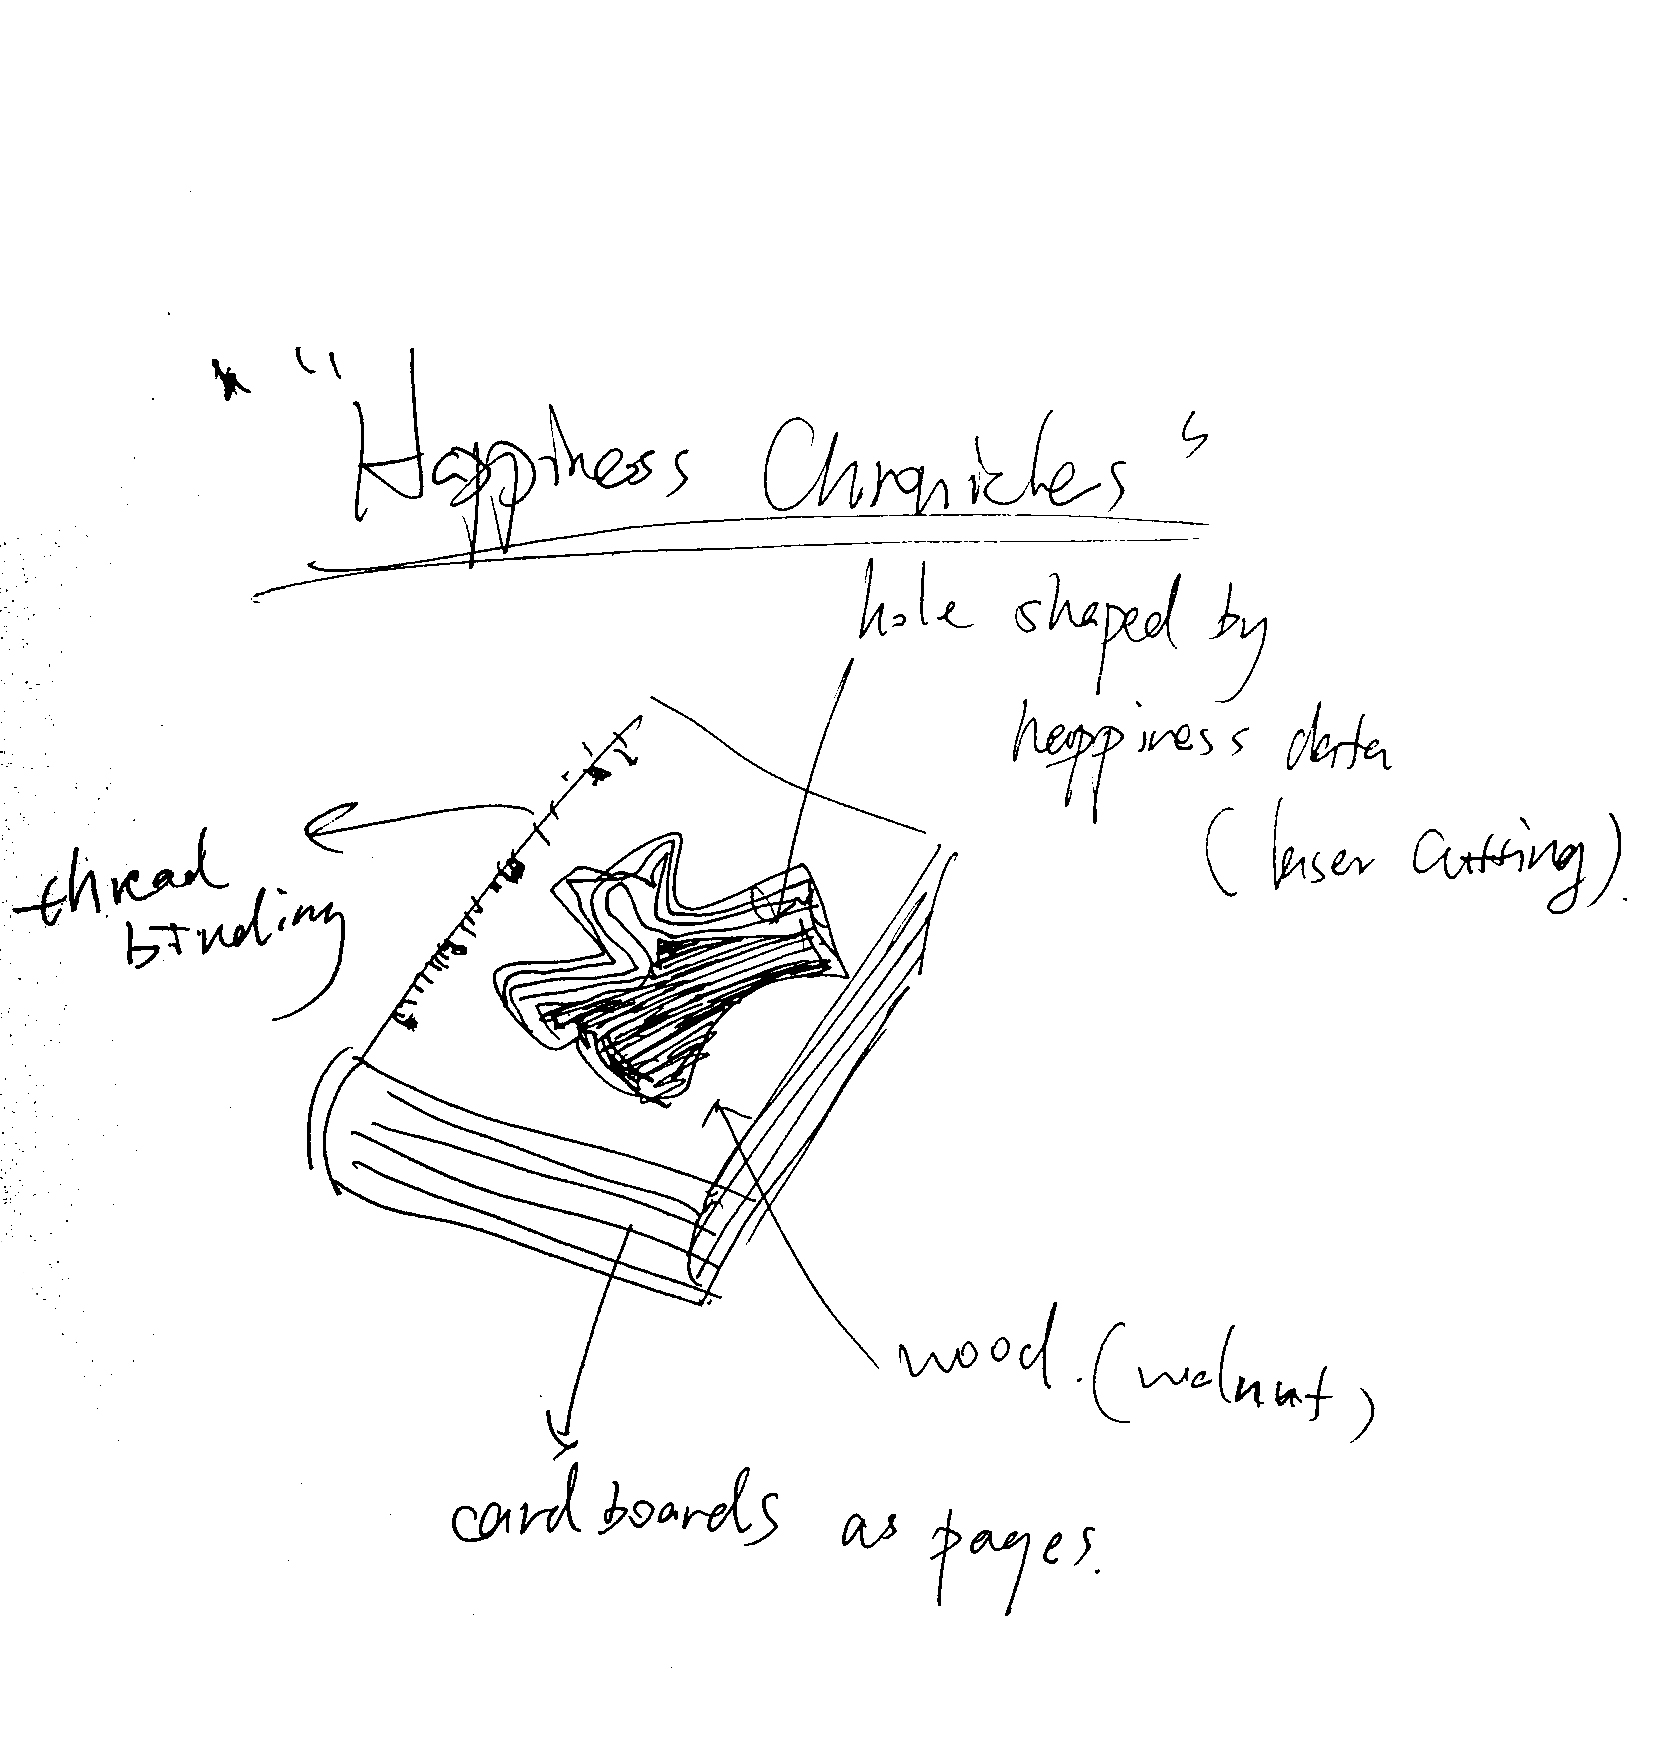 "Happiness Chronicles"
hole shaped by
happiness data
(laser cutting).
thread
binding
wood. (walnut)
cardboards as pages.